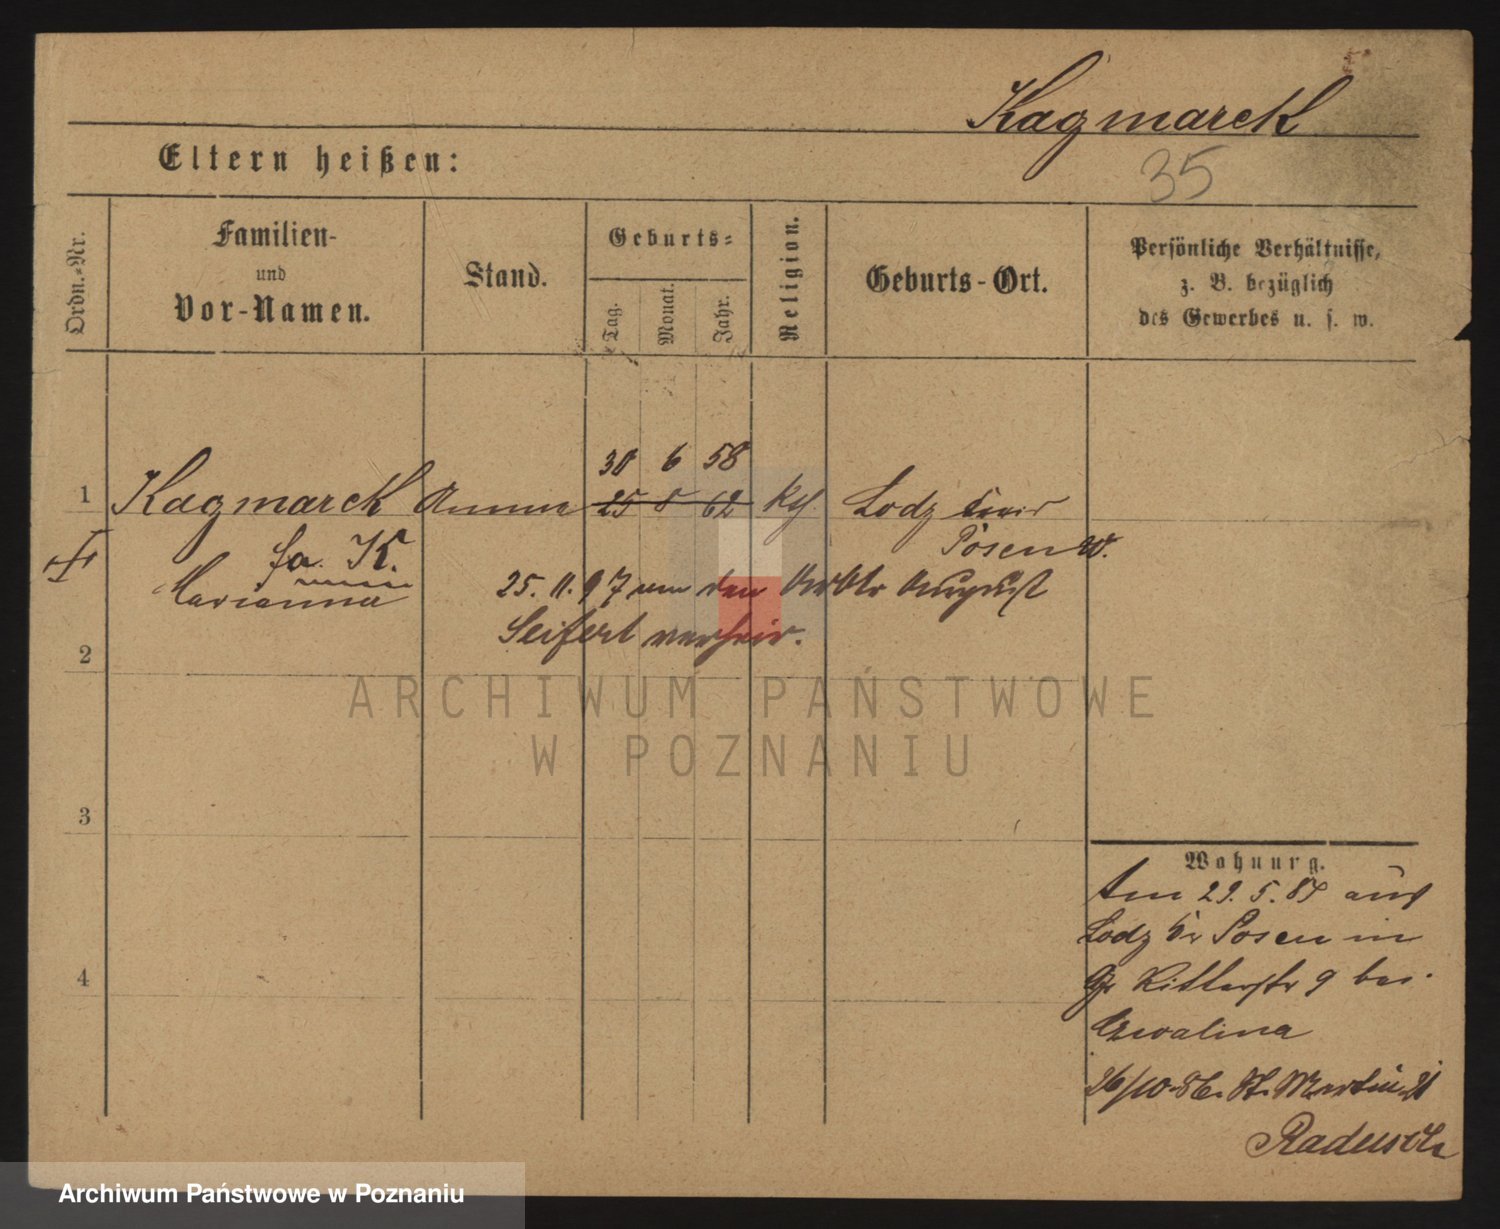 Kagmarek
35
Eltern heißen:
Ordn.-Nr.
Familien-
und
Vor-Namen.
Stand.
Geburts-
Tag.
Monat.
Jahr.
Religion.
Geburts-Ort.
Persönliche Verhältnisse,
z. B. bezüglich
des Gewerbes u. s. w.
30 6 58
1 Kagmarek Amme 25 8 62 kth. Lodz Kreis
Posen W.
K.
Marianna
25. 11. 97 mit den August
Seifert verheir.
2
ARCHIWUM PAŃSTWOWE
W POZNANIU
3
4
Wohnung.
Am 29. 5. 85 aus
Lodz Kr Posen in
Gr Ritterstr 9 bei
Chwalina
26/10. 86. St. Martin 21
Radusch
Archiwum Państwowe w Poznaniu